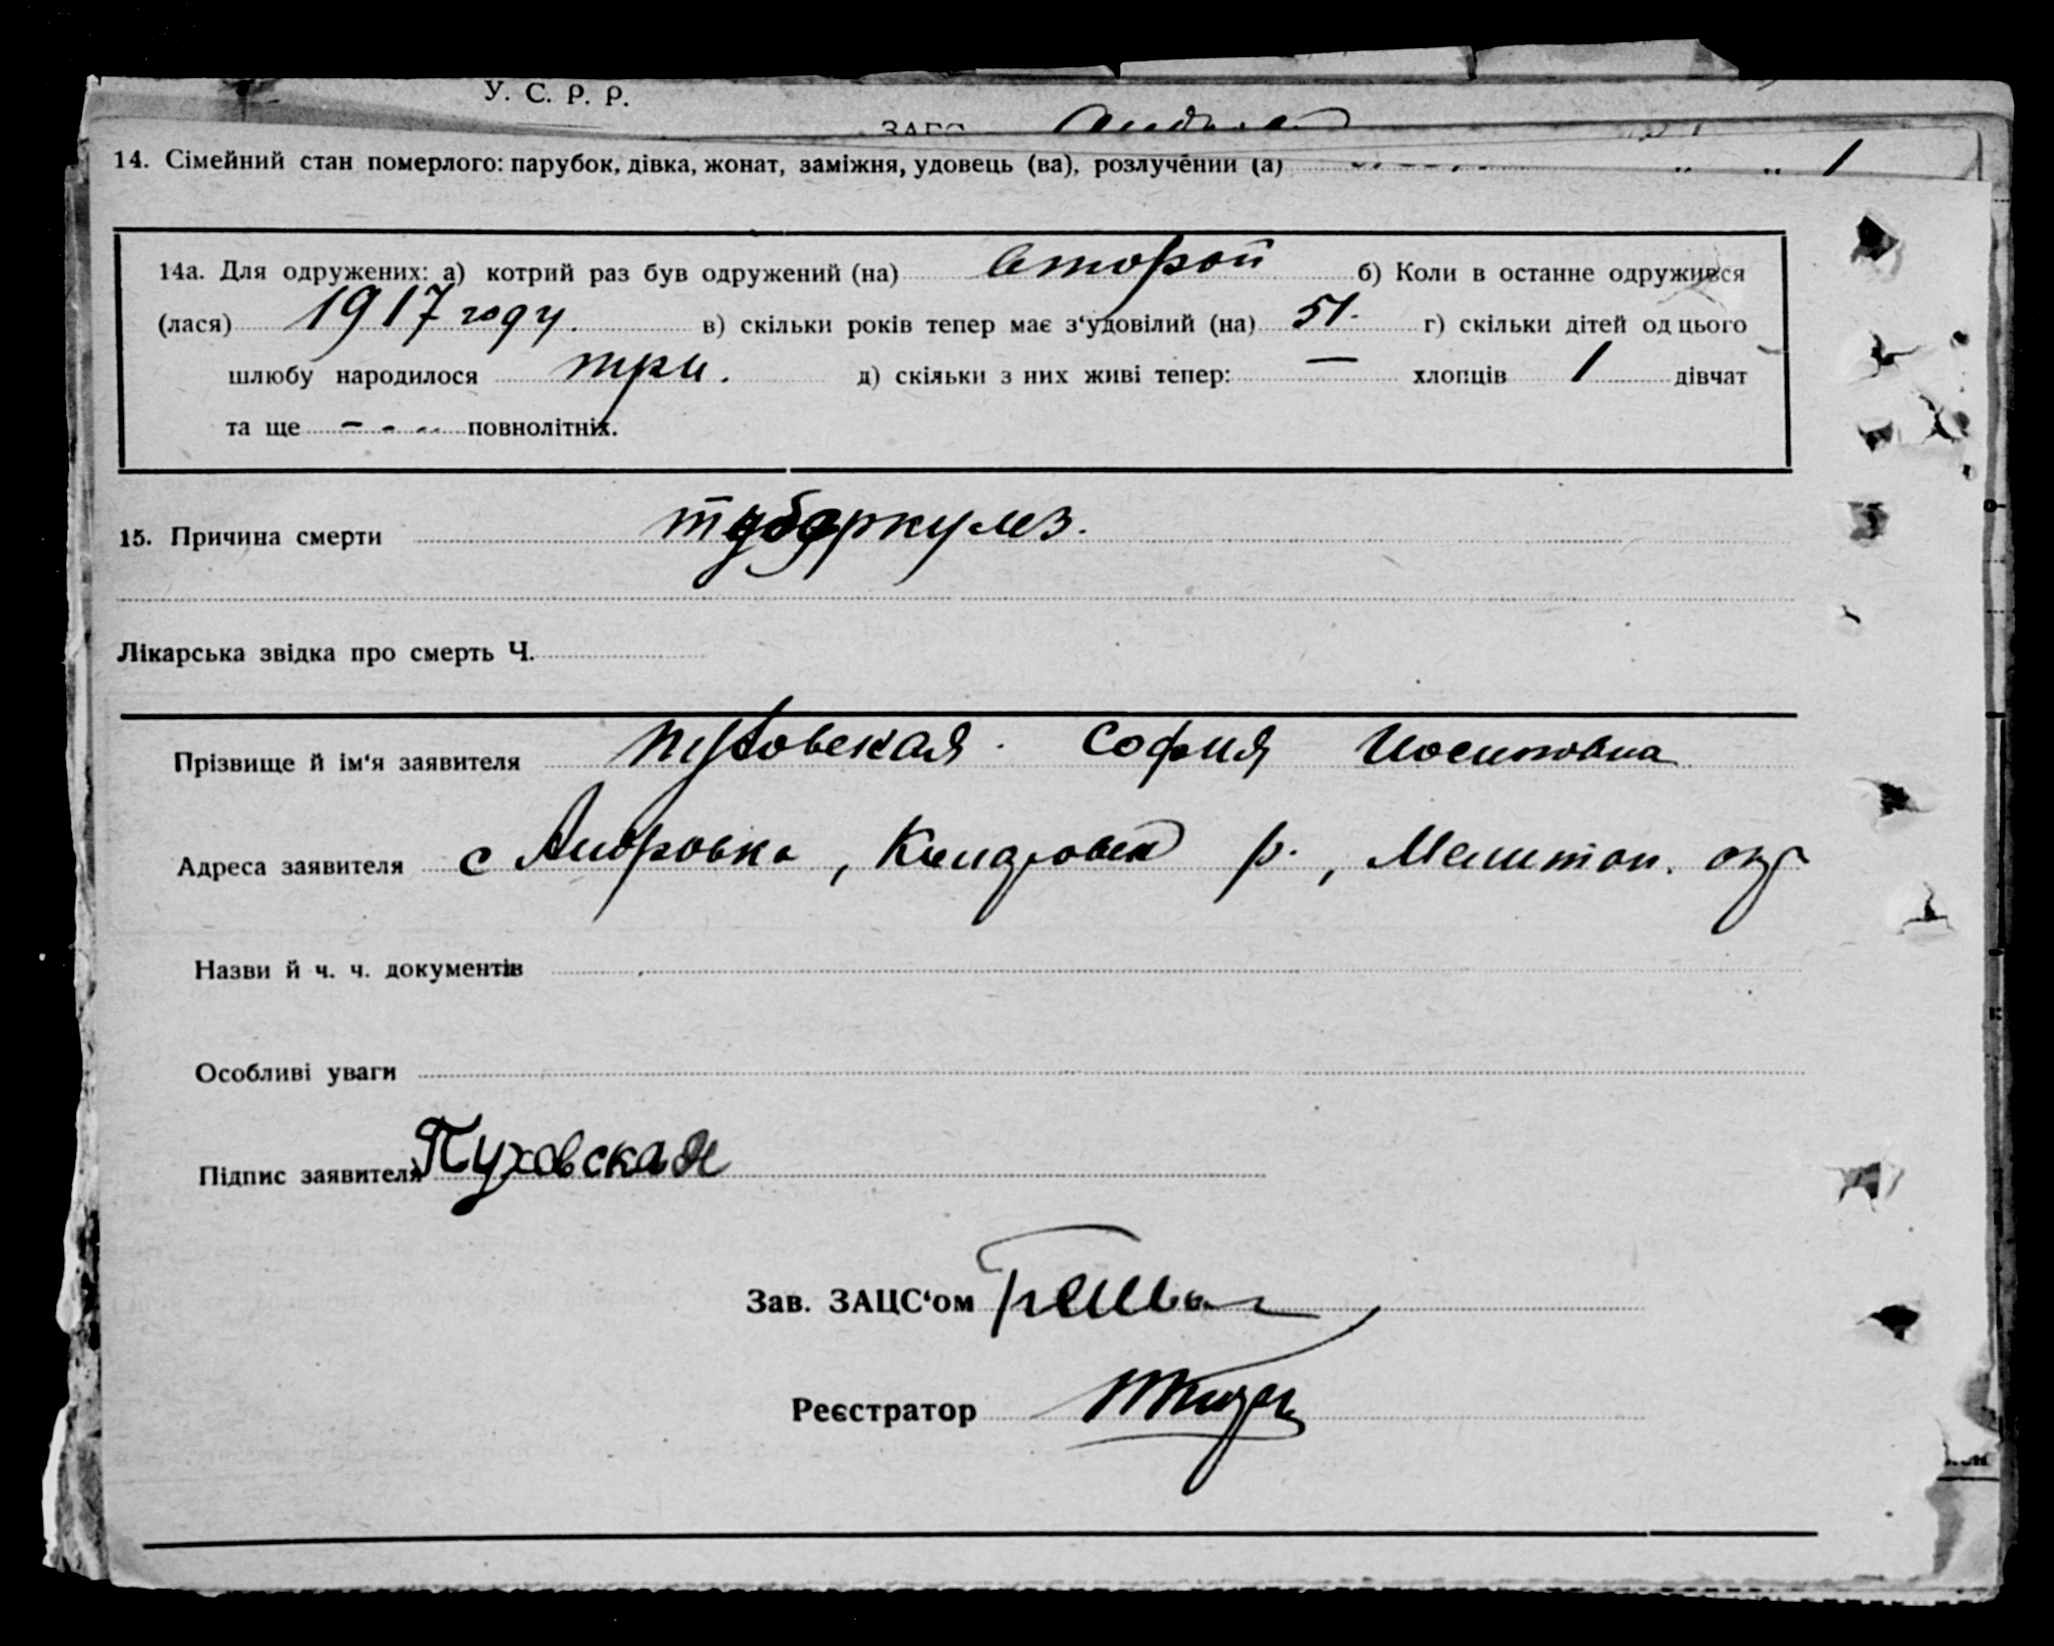 У. С. Р. Р.
14. Сімейний стан померлого: парубок, дівка, жонат, заміжня, удовець (ва), розлучений (а)
14а. Для одружених: а) котрий раз був одружений (на) второй б) Коли в останне одружився
(лася) 1917 году. в) скільки років тепер має з‘удовілий (на) 51. г) скільки дітей од цього
шлюбу народилося три. д) скільки з них живі тепер: — хлопців 1 дівчат
та ще - - - - повнолітніх.
15. Причина смерти туберкулез.
Лікарська звідка про смерть Ч.
Прізвище й ім‘я заявителя Пуховская София Иосиповна
Адреса заявителя с р., Мелитоп. окр
Назви й ч. ч. документів
Особливі уваги
Підпис заявителя Пуховская
Зав. ЗАЦС‘ом
Реєстратор